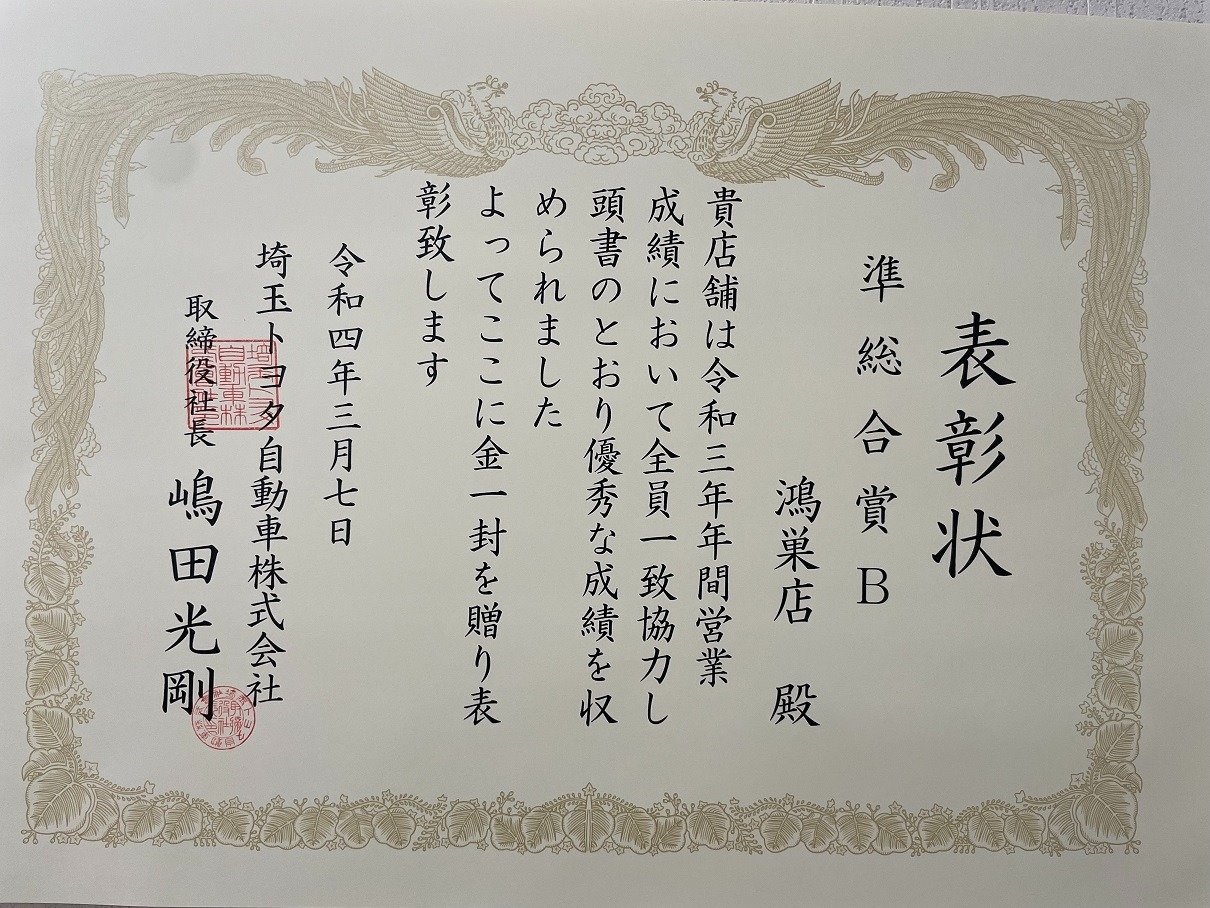 表彰状
準総合賞B
鴻巣店 殿
貴店舗は令和三年年間営業
成績において全員一致協力し
頭書のとおり優秀な成績を収
められました
よってここに金一封を贈り表
彰致します
令和四年三月七日
埼玉トヨタ自動車株式会社
取締役社長 嶋田光剛